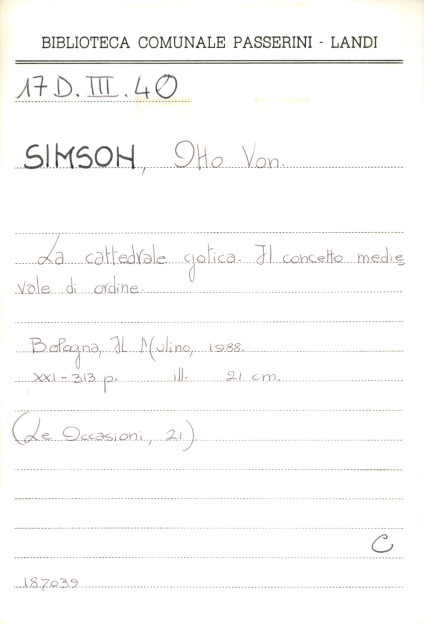 BIBLIOTECA COMUNALE PASSERINI - LANDI
17 D. III. 40
SIMSON, Otto Von.
La cattedrale gotica. Il concetto medie
vale di ordine.
Bologna, Il Mulino, 1988.
XXI-313 p. ill. 21 cm.
(Le Occasioni, 21)
C
187039